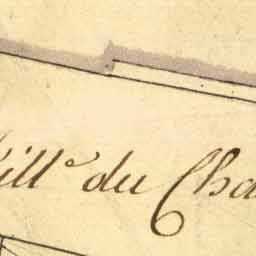 ill.e du Cha